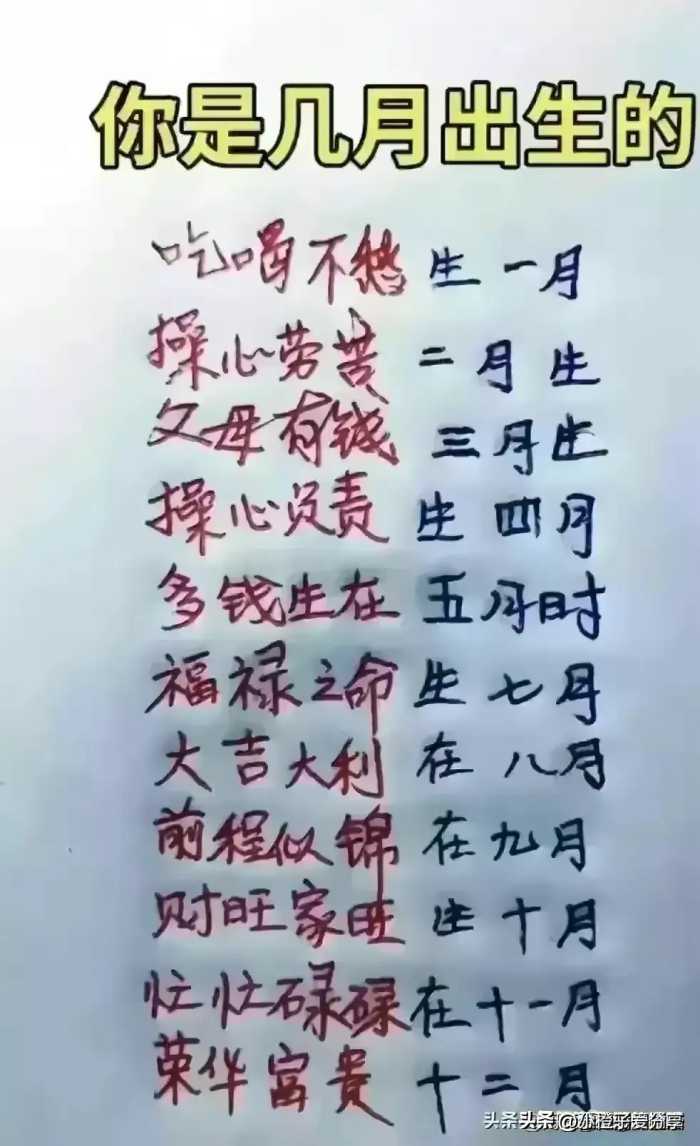 你是几月出生的
吃喝不愁生一月
操心劳苦二月生
父母有钱三月生
操心负责生四月
多钱生在五月时
福禄之命生七月
大吉大利在八月
前程似锦在九月
财旺家旺生十月
忙忙碌碌在十一月
荣华富贵十二月
头条@小橙子爱分享